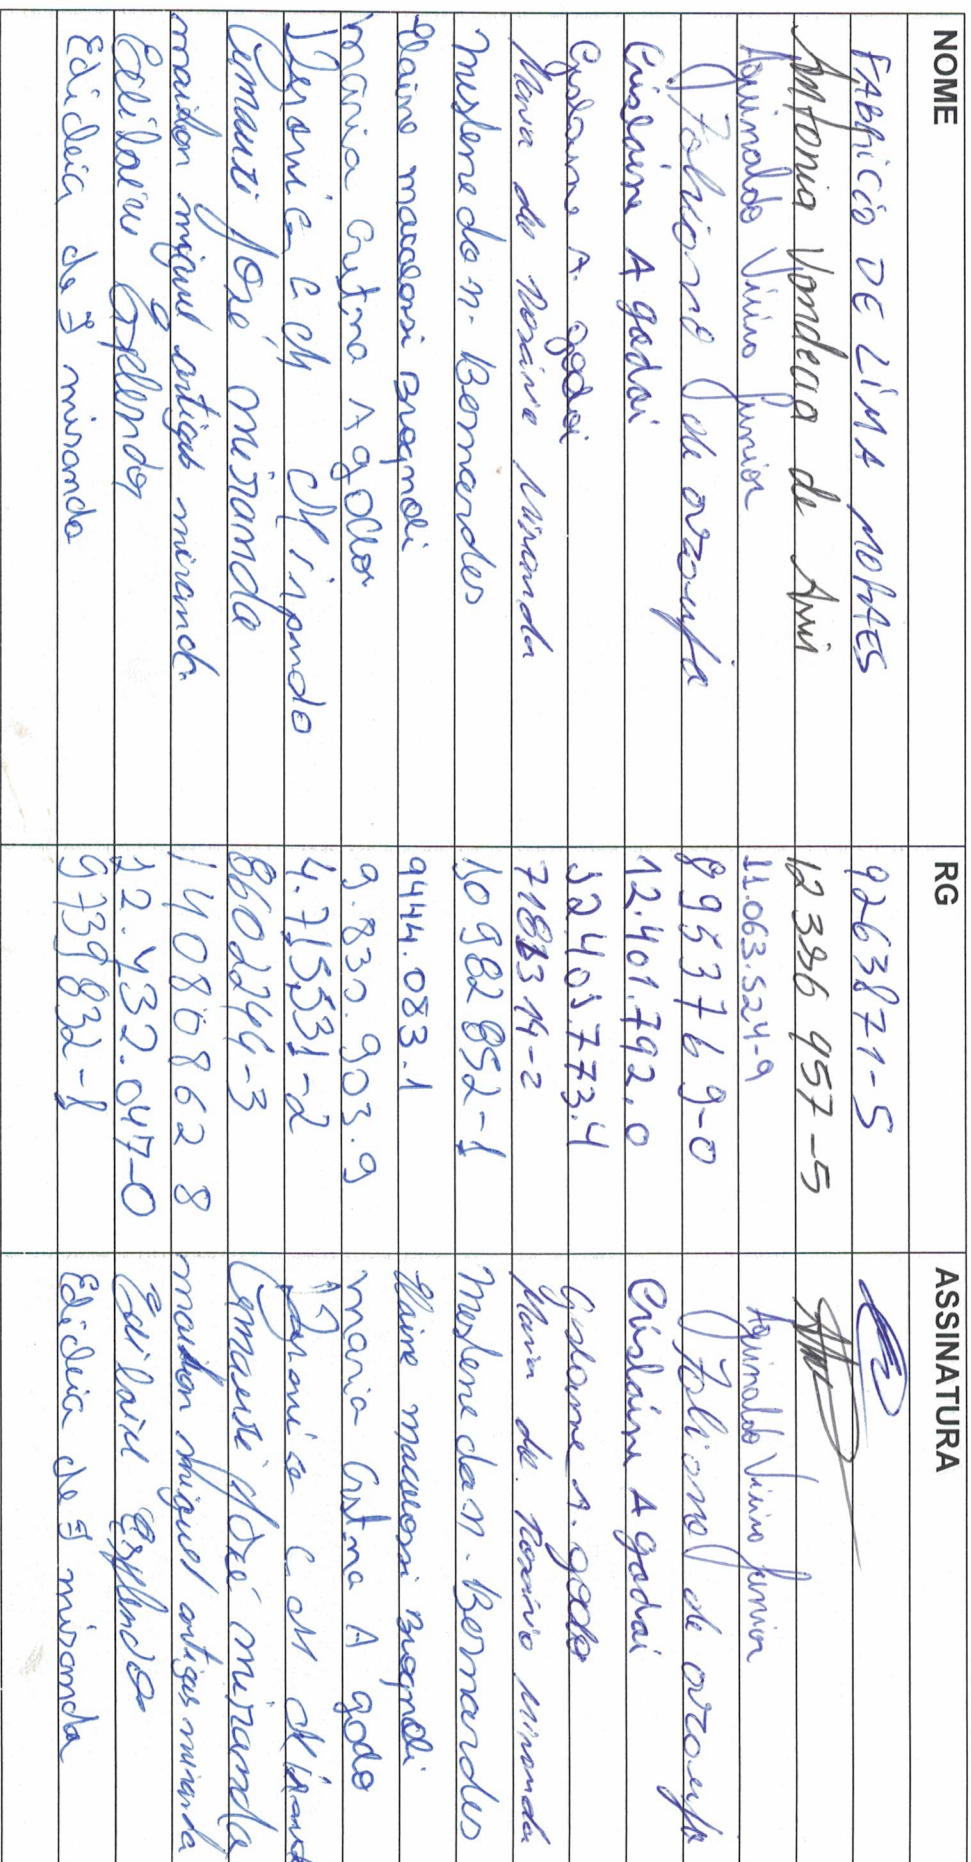 NOME RG ASSINATURA
FABRICIO DE LIMA MORAES 9263871-5
Antonia Vondecia de Assis 12396957-5
Aguinaldo Vieira Junior 11.063.524-9 Aguinaldo Vieira Junior
8953769-0
Crislaine A godoi 12.401.792.0 Crislaine A godoi
Gislaine A. godoi 12.405.773.4 Gislaine A. godoi
Maria do Rosário Miranda 7181314-2 Maria do Rosário Miranda
Meslene da n. Bernardes 10982852-1 Meslene da n. Bernardes
Elaine macaossi Brognoli 9444.083.1 Elaine macaossi Brognoli
maria Cristina A godoi 9.830.903.9 maria Cristina A godo
Veronica C M Miranda 4.715531-2 Veronica C M
Amauri José miranda 8602244-3 Amauri José miranda
maicon miguel artigas miranda 140808628 maicon miguel artigas miranda
Edilaine 12.432.047-0 Edilaine
Edicleia de J miranda 9739832-1 Edicleia de J miranda